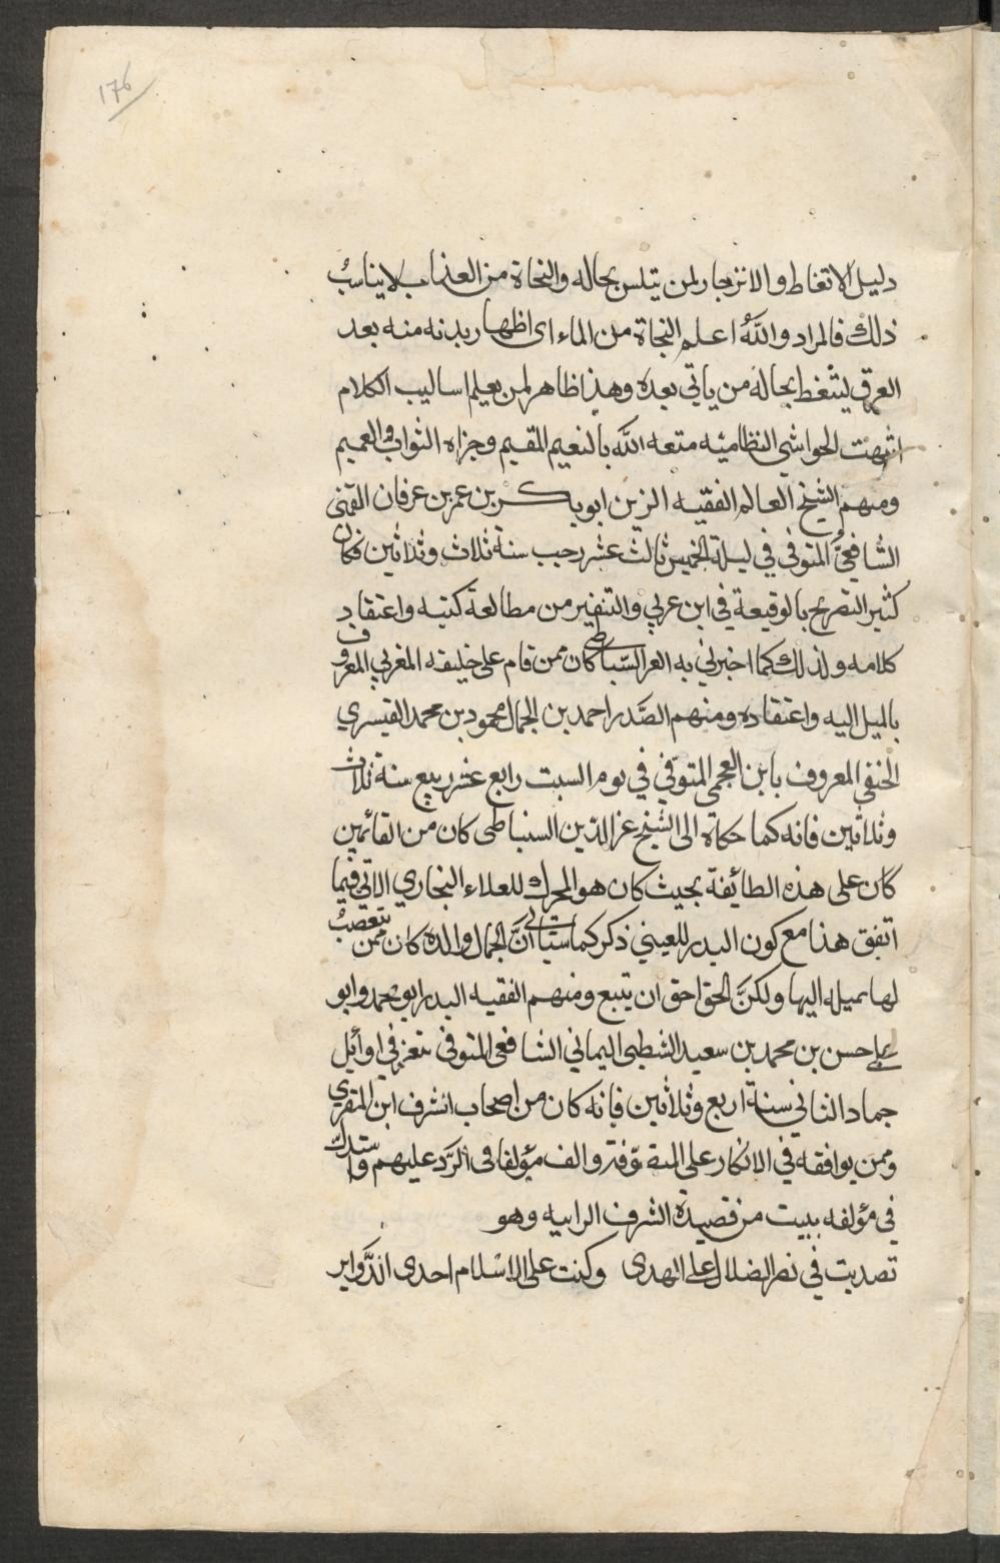 176
دليل الاتغاط والانزجار لمن يتلس بحاله والنجاة من العذاب لا يناسبُ
ذلك فالمراد واللهُ اعلم النجاة من الماء اى اظهار بدنه منه بعد
الغرق ليتغط بحاله من ياتي بعده وهذا ظاهر لمن يعلم اساليب الكلام
انتهت الحواشي النظاميه متعه الله بالنعيم المقيم وجزاه الثواب العميم
ومنهم الشيخ العالم الفقيه الزين ابو بكر بن عمر بن عرفان القمني
الشافعيُّ المتوفي في ليلة الخميس ثالث عشر رجب سنة ثلاث وثلاثين فكان
كثير التصريح بالوقيعة في ابن عربي والتنفير من مطالعة كتبه واعتقاد
كلامه ولذلك كما اخبرني به العز السنباطي كان ممن قام على خليفه المغربي المعروف
بالميل اليه واعتقاده ومنهم الصَّدر احمد بن الجمال محمود بن محمد القيسري
الحنفي المعروف بابن العجمي المتوفي في يوم السبت رابع عشر ربيع سنة ثلاث
وثلاثين فانه كما حكاه الى الشيخ عز الدين السنباطى كان من القائمين
كان على هذه الطائفة بحيث كان هو المحرك للعلاء البخاري الاتي فيما
اتفق هذا مع كون البدر للعيني ذكر كما سياتي انَّ الجمال والده كان ممن يتعصبُ
لها بميله اليها ولكنَّ الحق احق ان يتبع ومنهم الفقيه البدر ابو محمد وابو
على حسن بن محمد بن سعيد الشظبى اليماني الشافعى المتوفى بتعز في اوائل
جماد الثاني سنة اربع وثلاثين فانه كان من اصحاب الشرف ابن المقري
وممن يوافقه في الانكار على المتصوفة والف مؤلفا فى الرَّد عليهم واستدل
في مؤلفه ببيت من قصيدة الشرف الرابيه وهو
تصديت في نصر الضلال على الهدى وكنت على الاسلام احدى الدَّواير